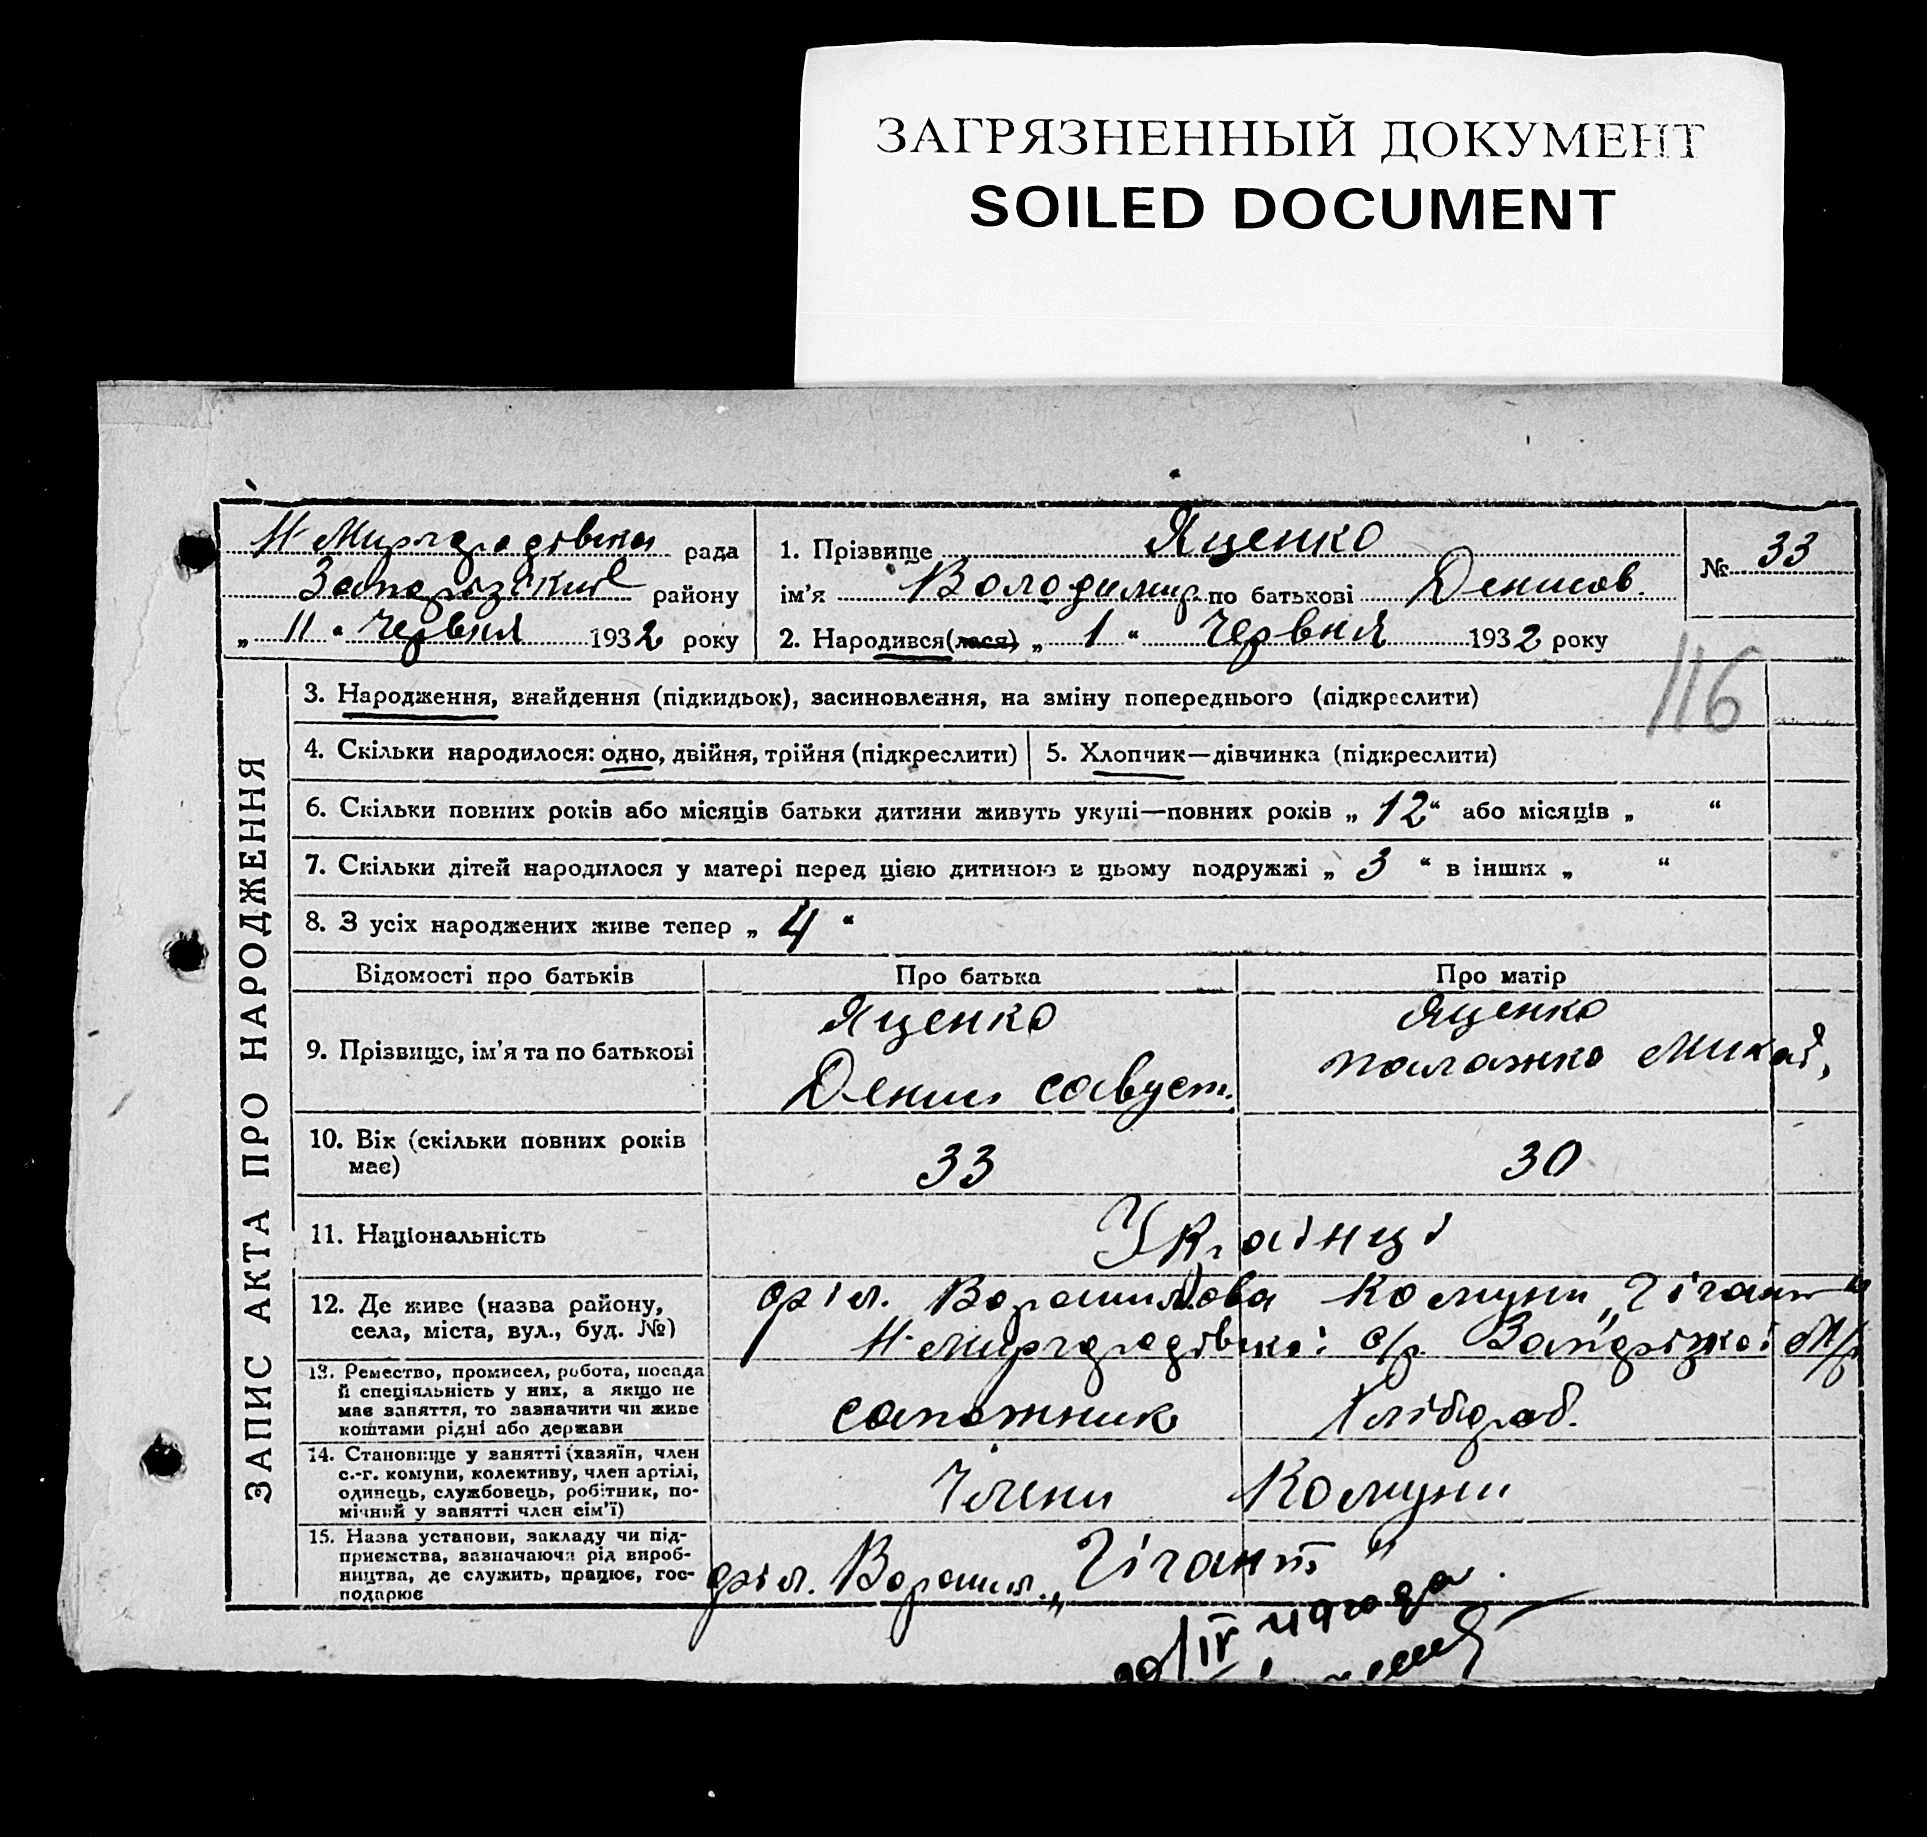 ЗАГРЯЗНЕННЫЙ ДОКУМЕНТ
SOILED DOCUMENT
Н-Миргородівска рада
Запорізский району
„ 11 “ Червня 1932 року
1. Прізвище Яценко
ім’я Володимир по батькові Денисов.
2. Народився(лася) „ 1 “ Червня 1932 року
№ 33
116
ЗАПИС АКТА ПРО НАРОДЖЕННЯ
3. Народження, знайдення (підкидьок), засиновлення, на зміну попереднього (підкреслити)
4. Скільки народилося: одно, двійня, трійня (підкреслити)
5. Хлопчик—дівчинка (підкреслити)
6. Скільки повних років або місяців батьки дитини живуть укупі—повних років „ 12 “ або місяців „ “
7. Скільки дітей народилося у матері перед цією дитиною в цьому подружжі „ 3 “ в інших „ “
8. З усіх народжених живе тепер „ 4 “
Відомості про батьків Про батька Про матір
9. Прізвище, ім’я та по батькові
Яценко
Денис Савуст.
Яценко
Палажка Микол,
10. Вік (скільки повних років
має)
33 30
11. Національність
Українці
12. Де живе (назва району,
села, міста, вул., буд. №)
філ. Ворошилова Комуни „Гігант“
Н-Миргородівскої с/р Запорізкої М/р
13. Ремество, промисел, робота, посада
й спеціяльність у них, а якщо не
має заняття, то зазначити чи живе
коштами рідні або держави
сапожник Хлібороб.
14. Становище у занятті (хазяїн, член
с.-г. комуни, колективу, член артілі,
одинець, службовець, робітник, по-
мічний у занятті член сім’ї)
Члени Комуни
15. Назва установи, закладу чи під-
приємства, зазначаючи рід вироб-
ництва, де служить, працює, гос-
подарює
філ. Ворошил. „Гігант“
IV 49 года